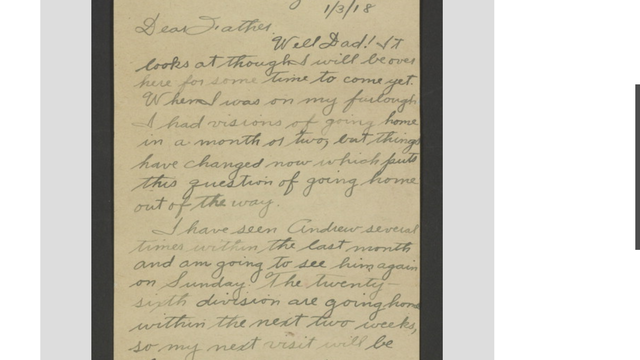 1/3/18
Dear Father,
Well Dad! It
looks at though I will be over
here for some time to come yet.
When I was on my furlough
I had visions of going home
in a month or two, but things
have changed now which puts
this question of going home
out of the way.
I have seen Andrew several
times within the last month
and am going to see him again
on Sunday. The twenty-
sixth division are going home
within the next two weeks,
so my next visit will be